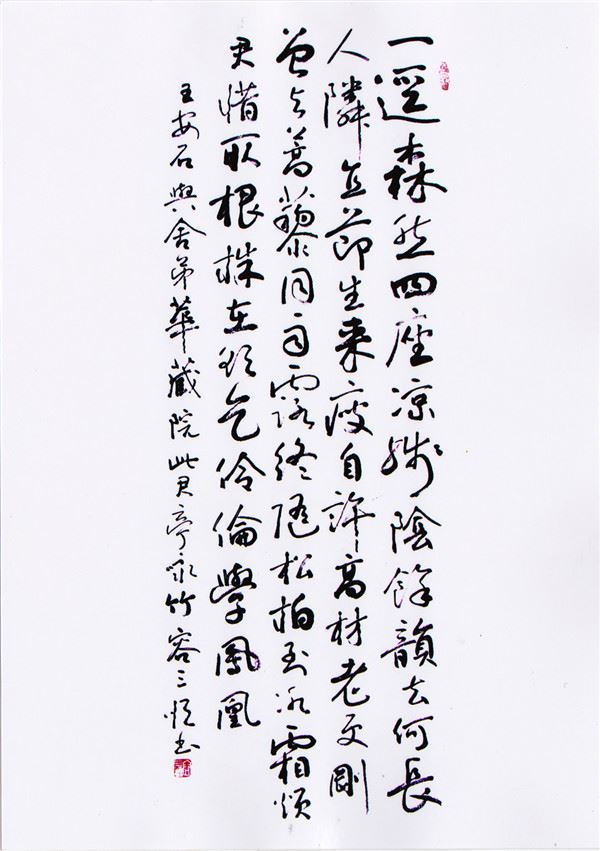 一逕森然四座涼殘陰餘韻去何長
人憐直節生來瘦自許高材老更剛
曾与蒿藜同雨露終隨松柏到冰霜煩
君惜取根株在欲乞伶倫學鳳凰
王安石與舍弟華藏院此君亭詠竹 容三恒书